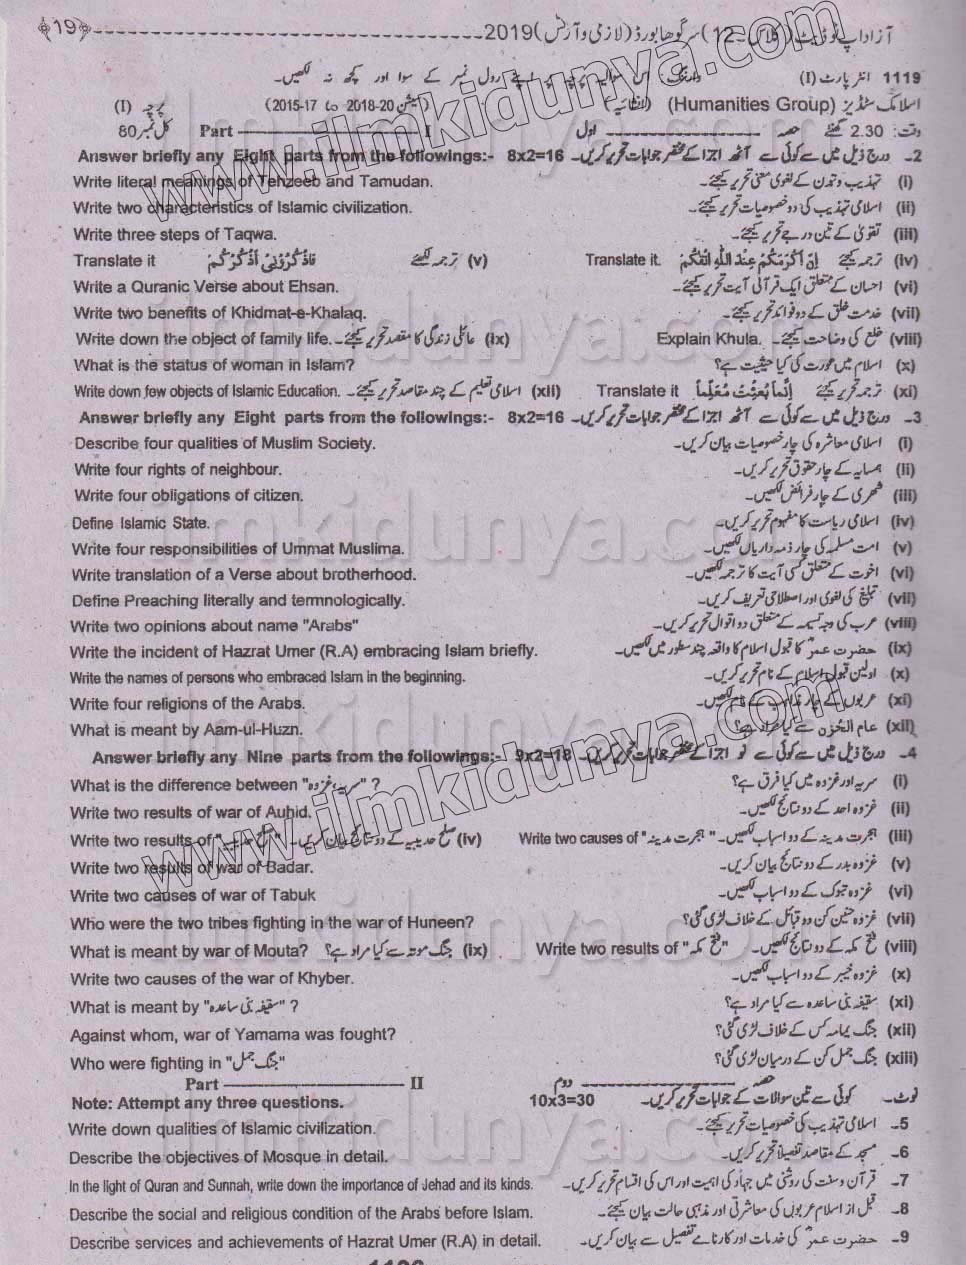 ﴿19﴾ آزاد اپ ٹو ڈیٹ (کلاس-12) سرگودھا بورڈ (لازمی و آرٹس) 2019
1119 انٹر پارٹ (I) وارننگ:- اس سوالیہ پرچہ پر اپنے رول نمبر کے سوا اور کچھ نہ لکھیں۔
اسلامک سٹڈیز (Humanities Group) (انشائیہ) (سیشن 20-2018 تا 17-2015) پرچہ (I)
وقت: 2.30 گھنٹے حصہ اول Part I کل نمبر 80
Answer briefly any Eight parts from the followings:- 8x2=16 درج ذیل میں سے کوئی سے آٹھ اجزا کے مختصر جوابات تحریر کریں۔ 2-
Write literal meanings of Tehzeeb and Tamudan. تہذیب و تمدن کے لغوی معنی تحریر کیجئے۔ (i)
Write two characteristics of Islamic civilization. اسلامی تہذیب کی دو خصوصیات تحریر کیجئے۔ (ii)
Write three steps of Taqwa. تقویٰ کے تین درجے تحریر کیجئے۔ (iii)
Translate it فَاذْكُرُوْنِیْ اَذْكُرْكُمْ ترجمہ لکھئے (v) Translate it. اِنَّ اَكْرَمَكُمْ عِنْدَ اللّٰهِ اَتْقٰكُمْ ترجمہ کیجئے (iv)
Write a Quranic Verse about Ehsan. احسان کے متعلق ایک قرآنی آیت تحریر کیجئے۔ (vi)
Write two benefits of Khidmat-e-Khalaq. خدمت خلق کے دو فوائد تحریر کیجئے۔ (vii)
Write down the object of family life. عائلی زندگی کا مقصد تحریر کیجئے۔ (ix) Explain Khula. خلع کی وضاحت کیجئے۔ (viii)
What is the status of woman in Islam? اسلام میں عورت کی کیا حیثیت ہے؟ (x)
Write down few objects of Islamic Education. اسلامی تعلیم کے چند مقاصد تحریر کیجئے۔ (xii) Translate it اِنَّمَا بُعِثْتُ مُعَلِّمًا ترجمہ تحریر کیجئے (xi)
Answer briefly any Eight parts from the followings:- 8x2=16 درج ذیل میں سے کوئی سے آٹھ اجزا کے مختصر جوابات تحریر کریں۔ 3-
Describe four qualities of Muslim Society. اسلامی معاشرہ کی چار خصوصیات بیان کریں۔ (i)
Write four rights of neighbour. ہمسایہ کے چار حقوق تحریر کریں۔ (ii)
Write four obligations of citizen. شہری کے چار فرائض لکھیں۔ (iii)
Define Islamic State. اسلامی ریاست کا مفہوم تحریر کریں۔ (iv)
Write four responsibilities of Ummat Muslima. امت مسلمہ کی چار ذمہ داریاں لکھیں۔ (v)
Write translation of a Verse about brotherhood. اخوت کے متعلق کسی آیت کا ترجمہ لکھیں۔ (vi)
Define Preaching literally and termnologically. تبلیغ کی لغوی اور اصطلاحی تعریف کریں۔ (vii)
Write two opinions about name "Arabs" عرب کی وجہ تسمیہ کے متعلق دو اقوال تحریر کریں۔ (viii)
Write the incident of Hazrat Umer (R.A) embracing Islam briefly. حضرت عمرؓ کا قبول اسلام کا واقعہ چند سطور میں لکھیں۔ (ix)
Write the names of persons who embraced Islam in the beginning. اولین قبول اسلام کے نام تحریر کریں۔ (x)
Write four religions of the Arabs. عربوں کے چار مذاہب کے نام لکھیں۔ (xi)
What is meant by Aam-ul-Huzn. عام الحزن سے کیا مراد ہے؟ (xii)
Answer briefly any Nine parts from the followings:- 9x2=18 درج ذیل میں سے کوئی سے نو اجزا کے مختصر جوابات تحریر کریں۔ 4-
What is the difference between "سریہ، غزوہ" ? سریہ اور غزوہ میں کیا فرق ہے؟ (i)
Write two results of war of Auhid. غزوہ احد کے دو نتائج لکھیں۔ (ii)
Write two results of "صلح حدیبیہ" صلح حدیبیہ کے دو نتائج بیان کریں۔ (iv) Write two causes of "ہجرت مدینہ" ہجرت مدینہ کے دو اسباب لکھیں۔ (iii)
Write two results of war of Badar. غزوہ بدر کے دو نتائج بیان کریں۔ (v)
Write two causes of war of Tabuk غزوہ تبوک کے دو اسباب لکھیں۔ (vi)
Who were the two tribes fighting in the war of Huneen? غزوہ حنین کن دو قبائل کے خلاف لڑی گئی؟ (vii)
What is meant by war of Mouta? جنگ موتہ سے کیا مراد ہے؟ (ix) Write two results of "فتح مکہ" فتح مکہ کے دو نتائج لکھیں۔ (viii)
Write two causes of the war of Khyber. غزوہ خیبر کے دو اسباب لکھیں۔ (x)
What is meant by "سقیفہ بنی ساعدہ" ? سقیفہ بنی ساعدہ سے کیا مراد ہے؟ (xi)
Against whom, war of Yamama was fought? جنگ یمامہ کس کے خلاف لڑی گئی؟ (xii)
Who were fighting in "جنگ جمل" جنگ جمل کن کے درمیان لڑی گئی؟ (xiii)
Part II حصہ دوم
Note: Attempt any three questions. 10x3=30 کوئی سے تین سوالات کے جوابات تحریر کریں۔ نوٹ۔
Write down qualities of Islamic civilization. اسلامی تہذیب کی خصوصیات تحریر کیجئے۔ 5-
Describe the objectives of Mosque in detail. مسجد کے مقاصد تفصیلاً تحریر کریں۔ 6-
In the light of Quran and Sunnah, write down the importance of Jehad and its kinds. قرآن و سنت کی روشنی میں جہاد کی اہمیت اور اس کی اقسام تحریر کریں۔ 7-
Describe the social and religious condition of the Arabs before Islam. قبل از اسلام عربوں کی معاشرتی اور مذہبی حالت بیان کیجئے۔ 8-
Describe services and achievements of Hazrat Umer (R.A) in detail. حضرت عمرؓ کی خدمات اور کارنامے تفصیل سے بیان کریں۔ 9-
www.ilmkidunya.com
www.ilmkidunya.com
ilmkidunya.com
ilmkidunya.com
ilmkidunya.com
ilmkidunya.com